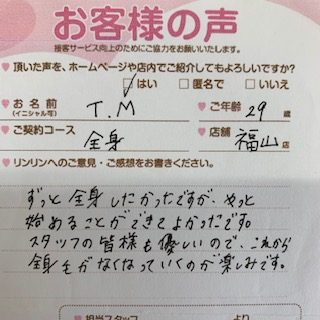 お客様の声
接客サービス向上のためにご協力をお願いいたします。
♥頂いた声を、ホームページや店内でご紹介してもよろしいですか?
□はい □匿名で □いいえ
♥お名前 (イニシャル可) T.M ♥ご年齢 29 歳
♥ご契約コース 全身 ♥店舗 福山 店
♥リンリンへのご意見・ご感想をお書きください。
ずっと全身したかったですが、やっと
始めることができてよかったです。
スタッフの皆様も優しいので、これから
全身毛がなくなっていくのが楽しみです。
♥担当スタッフ より